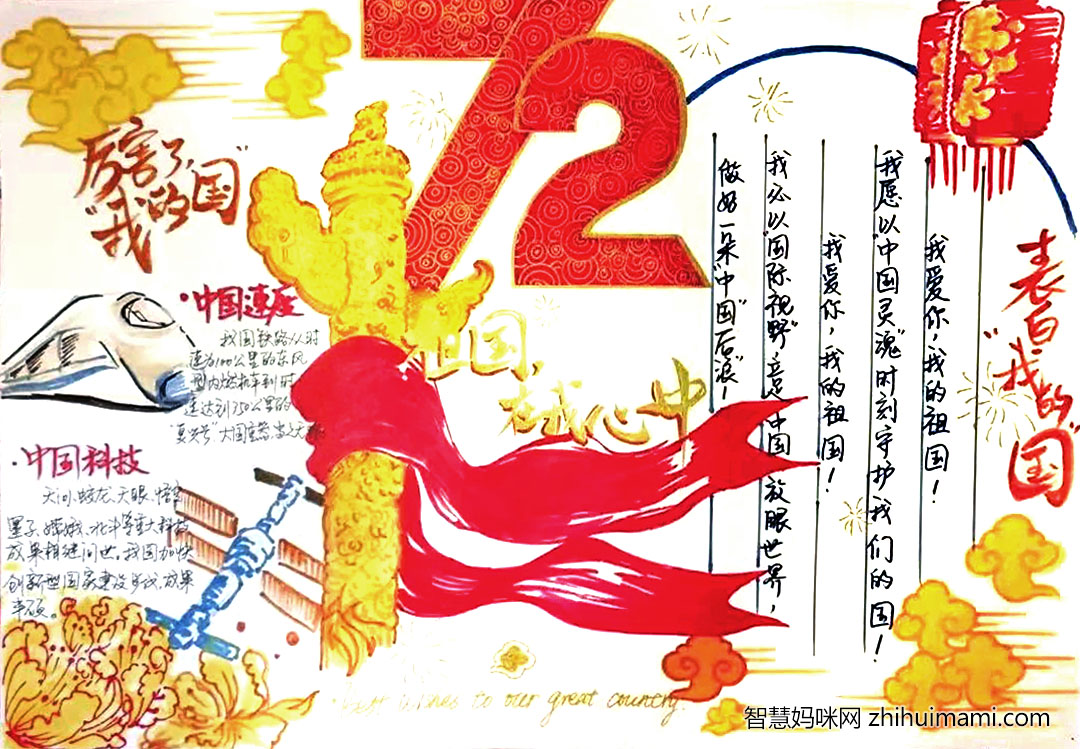 72
厉害了,
"我的国"
·中国速度
我国铁路从时
速为100公里的东风
型内燃机车到时
速达到350公里的
"复兴号"大国重器
·中国科技
天问、蛟龙、天眼、悟空
墨子、嫦娥、北斗等重大科技
成果相继问世。我国加快
创新型国家建设步伐,成果
丰硕。
祖国,
在我心中
表白
"我的国"
我爱你,我的祖国!
我愿以"中国灵魂"时刻守护我们的国!
我爱你,我的祖国!
我必以"国际视野"立足中国放眼世界,
做好一朵"中国"后浪"!
Best wishes to our great country.
智慧妈咪网 zhihuimami.com